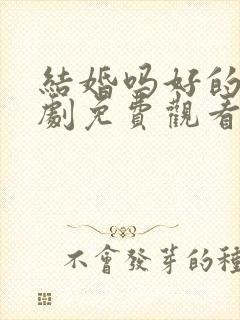 結婚吗好的
劇免費觀看
不會發芽的種